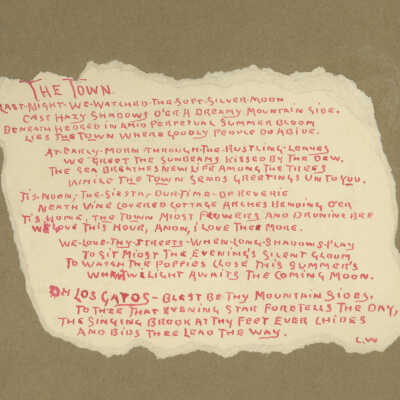 THE TOWN.
LAST·NIGHT·WE·WATCHED·THE·SOFT·SILVER·MOON
CAST HAZY SHADOWS O'ER A DREAMY MOUNTAIN SIDE.
BENEATH HEDGED IN AMID PERPETUAL SUMMER BLOOM
LIES THE TOWN WHERE GOODLY PEOPLE DO ABIDE.
AT·EARLY·MORN THROUGH·THE·RUSTLING·LEAVES
WE GREET THE SUNBEAMS KISSED BY THE DEW.
THE SEA BREATHES NEW LIFE AMONG THE TREES
WHILE THE TOWN SENDS GREETINGS UNTO YOU.
TIS·NOON, THE·SIESTA, OUR·TIME·OF REVERIE
NEATH VINE COVERED COTTAGE ARCHES BENDING O'ER
TIS HOME, THE TOWN MIDST FLOWERS AND DRONING BEE
WE LOVE THIS HOUR, ANON, I LOVE THEE MORE.
WE·LOVE·THY·STREETS·WHEN·LONG·SHADOWS·PLAY
TO SIT MIDST THE EVENING'S SILENT GLOOM
TO WATCH THE POPPIES CLOSE THIS SUMMER'S
WHEN TWILIGHT AWAITS THE COMING MOON.
OH LOS GATOS - BLEST BE THY MOUNTAIN SIDES,
TO THEE THAT EVENING STAR FORETELLS THE DAY,
THE SINGING BROOK AT THY FEET EVER CHIDES
AND BIDS THEE LEAD THE WAY.
L.W